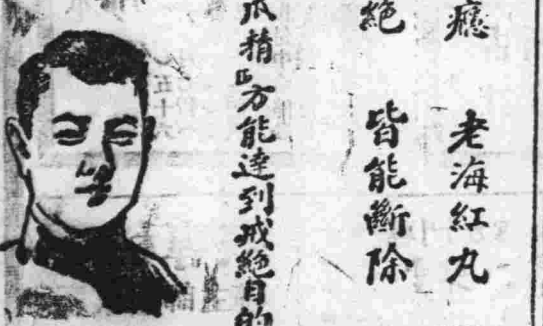 癮 老海紅丸
絕 皆能斷除
瓜精』方能達到戒絕目的